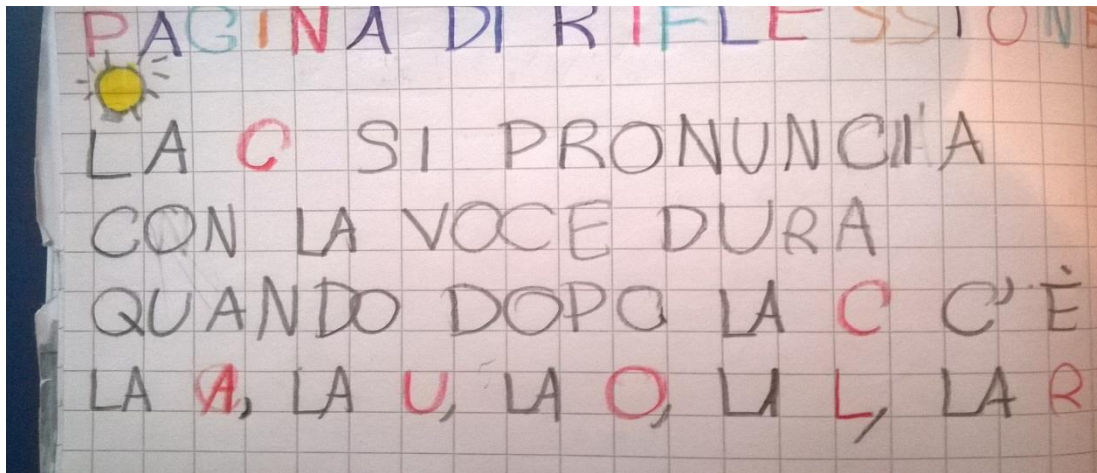 PAGINA DI RIFLESSIONE
LA C SI PRONUNCIA
CON LA VOCE DURA
QUANDO DOPO LA C C'È
LA A, LA U, LA O, LA L, LA R